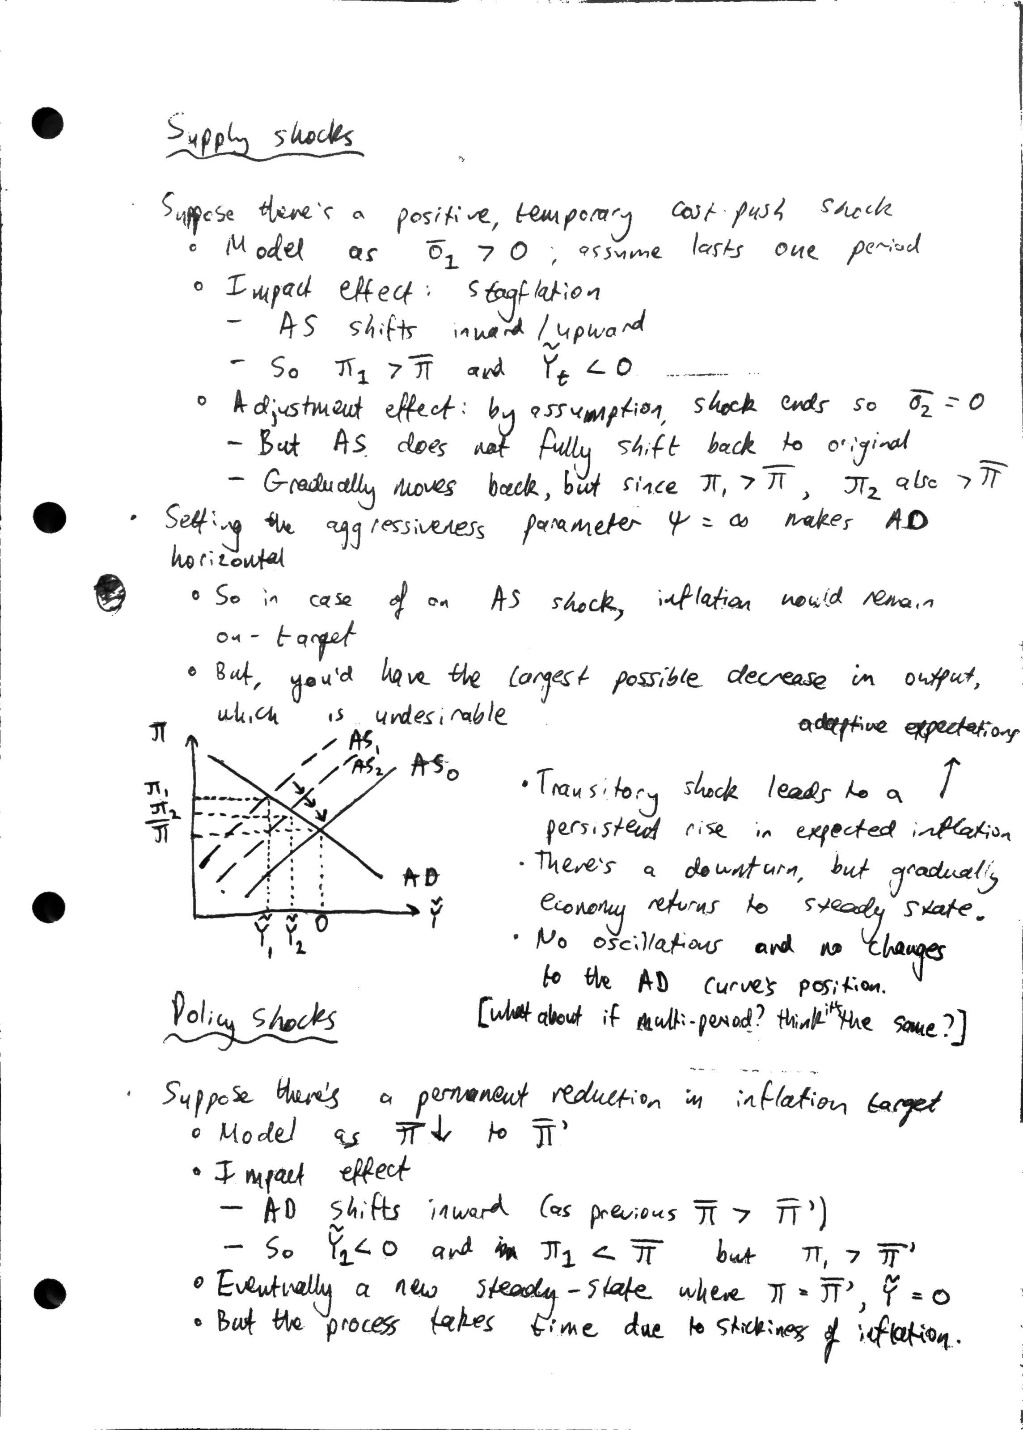 Supply shocks
· Suppose there's a positive, temporary cost-push shock
∘ Model as o̅₁ > 0 ; assume lasts one period
∘ Impact effect: stagflation
– AS shifts inward/upward
– So π₁ > π̅ and Ỹₜ < 0
∘ Adjustment effect: by assumption, shock ends so o̅₂ = 0
– But AS does not fully shift back to original
– Gradually moves back, but since π₁ > π̅, π₂ also > π̅
· Setting the aggressiveness parameter Ψ = ∞ makes AD
horizontal
∘ So in case of an AS shock, inflation would remain
on-target
∘ But, you'd have the largest possible decrease in output,
which is undesirable
π
AS₁
AS₂
AS₀
π₁
π₂
π̅
AD
Ỹ
Ỹ₁ Ỹ₂ 0
adaptive expectations
↑
· Transitory shock leads to a
persistent rise in expected inflation
· There's a downturn, but gradually
economy returns to steady state.
· No oscillations and no changes
to the AD curve's position.
[what about if multi-period? think it's the same?]
Policy shocks
· Suppose there's a permanent reduction in inflation target
∘ Model as π̅↓ to π̅'
∘ Impact effect
– AD shifts inward (as previous π̅ > π̅')
– So Ỹ₁ < 0 and π₁ < π̅ but π₁ > π̅'
∘ Eventually a new steady-state where π = π̅', Ỹ = 0
∘ But the process takes time due to stickiness of inflation.